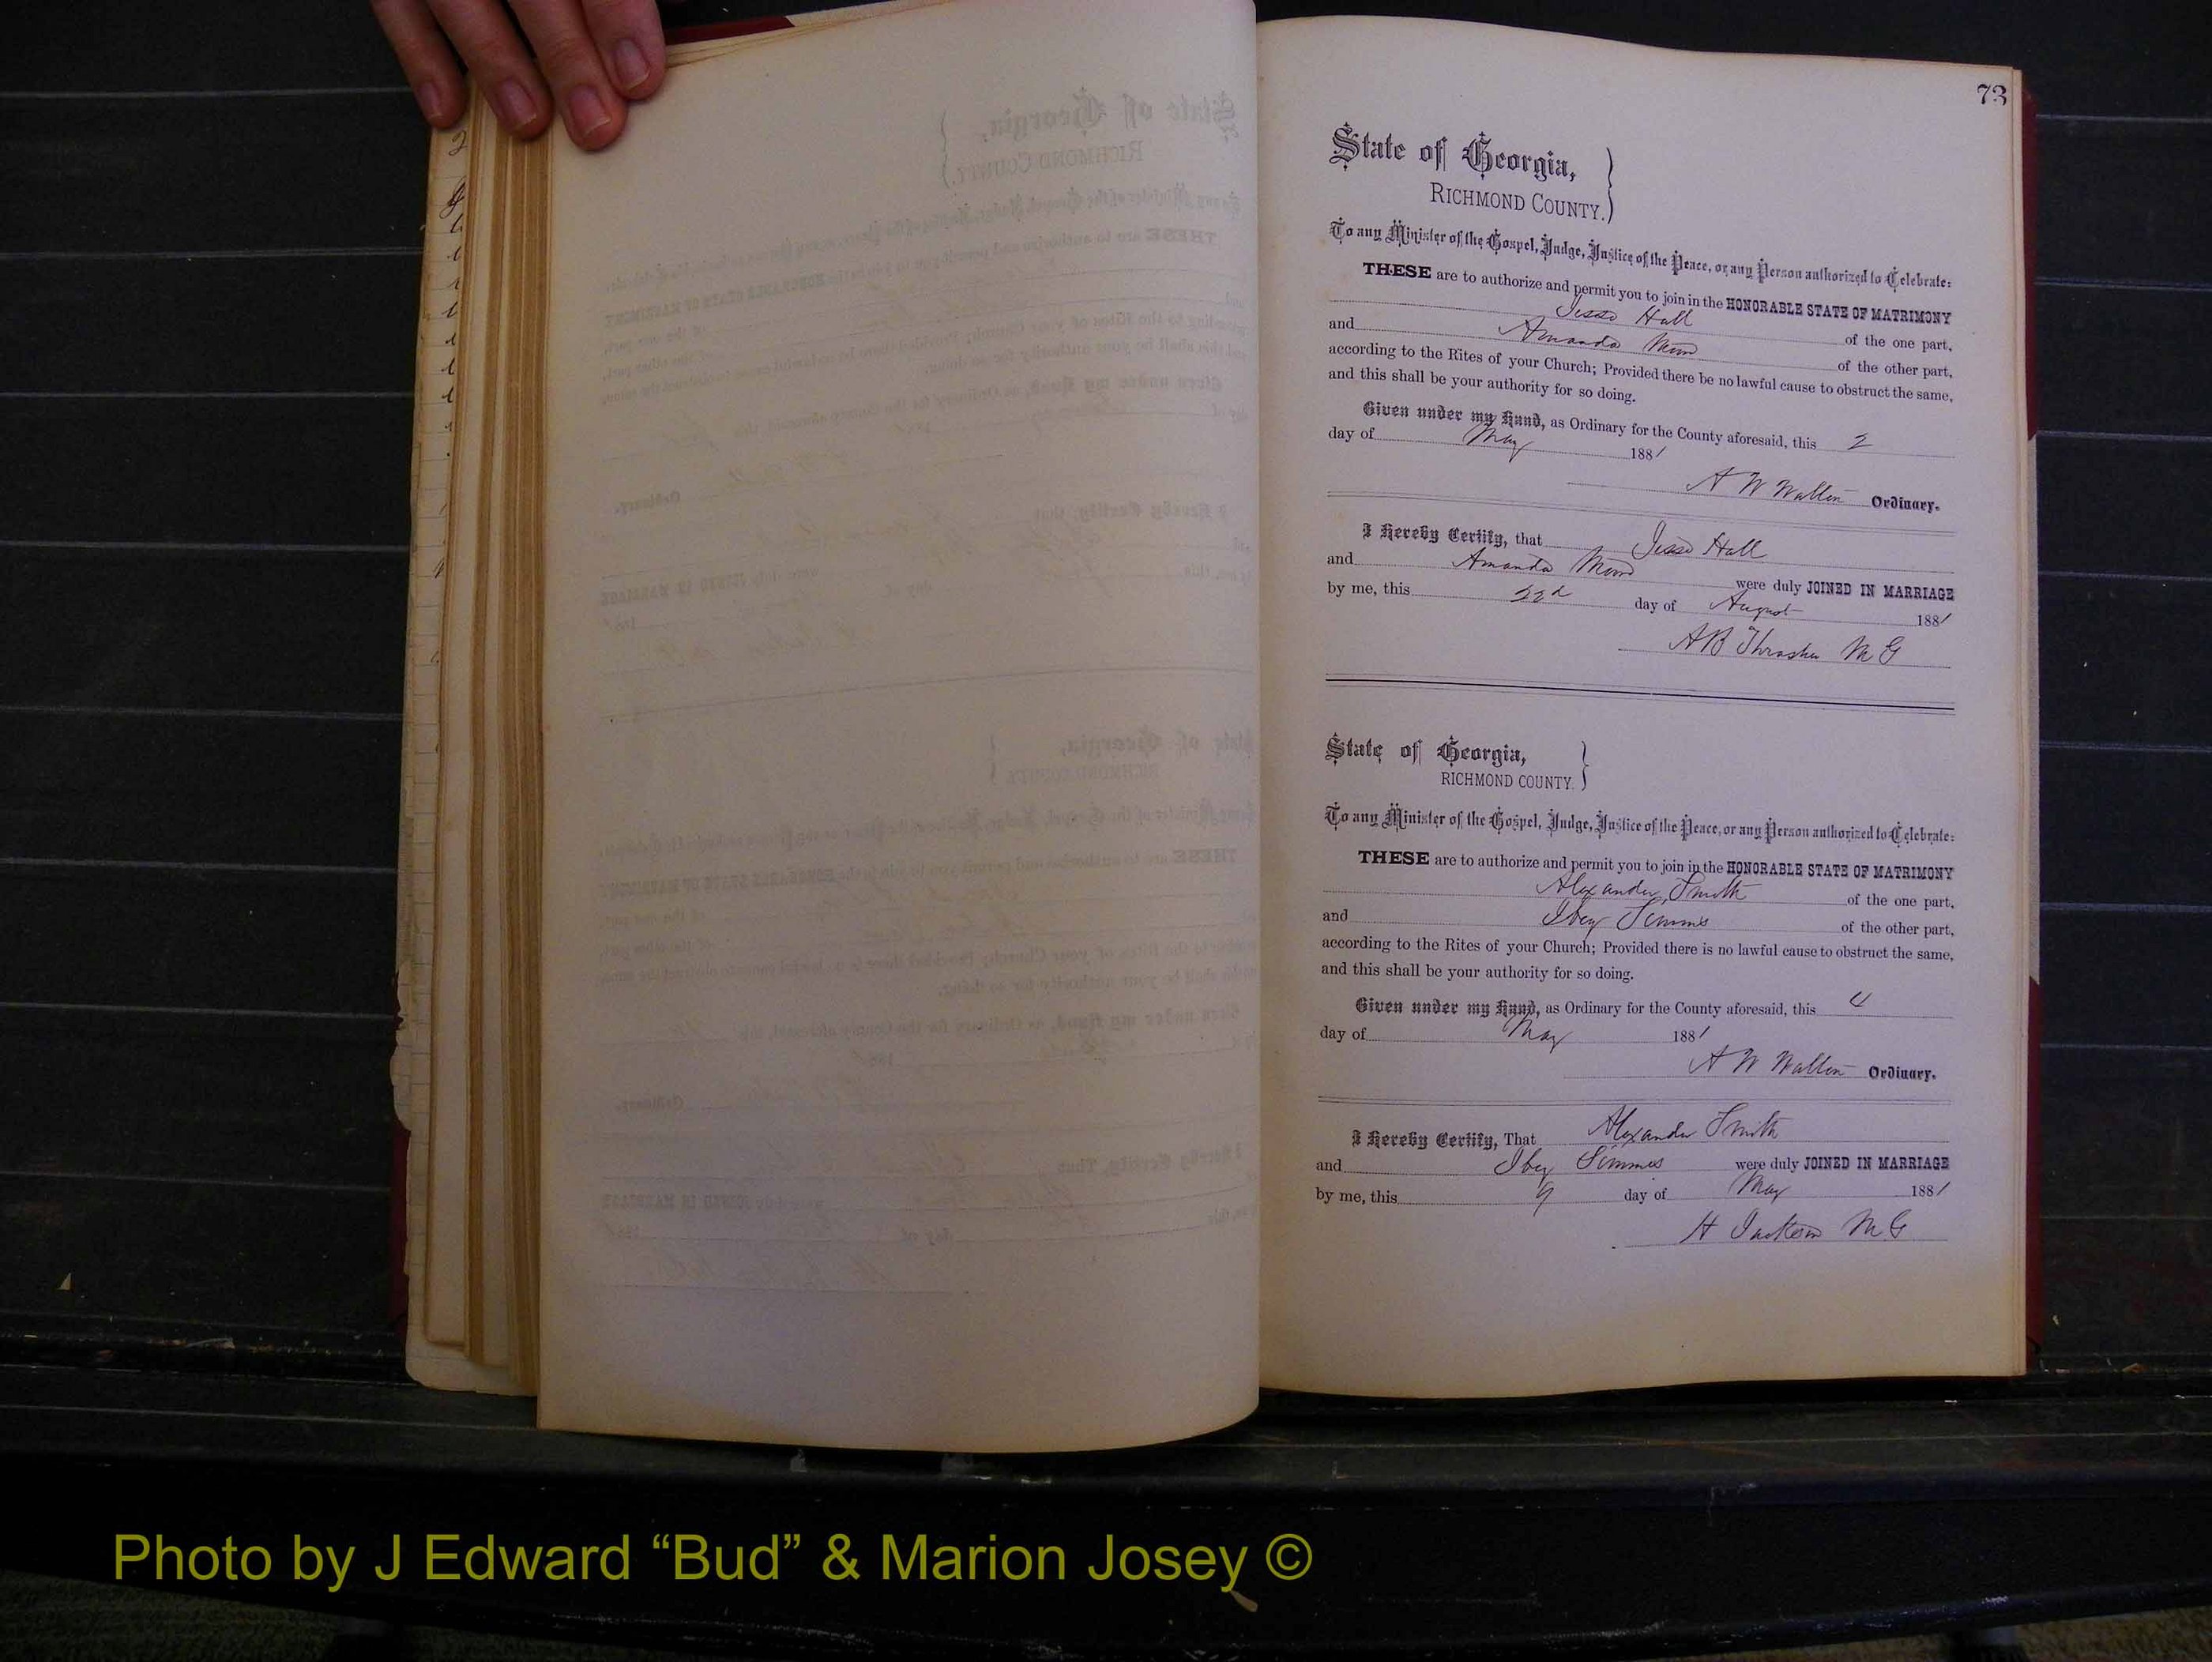 73
State of Georgia,
RICHMOND COUNTY.
To any Minister of the Gospel, Judge, Justice of the Peace, or any Person authorized to Celebrate:
THESE are to authorize and permit you to join in the HONORABLE STATE OF MATRIMONY
Jesse Hall of the one part,
and Amanda of the other part,
according to the Rites of your Church; Provided there be no lawful cause to obstruct the same,
and this shall be your authority for so doing.
Given under my Hand, as Ordinary for the County aforesaid, this 2
day of May 1881
A W Walton Ordinary.
I Hereby Certify, that Jesse Hall
and Amanda were duly JOINED IN MARRIAGE
by me, this day of August 1881
A B Thrasher M G
State of Georgia,
RICHMOND COUNTY.
To any Minister of the Gospel, Judge, Justice of the Peace, or any Person authorized to Celebrate:
THESE are to authorize and permit you to join in the HONORABLE STATE OF MATRIMONY
Alexander Smith of the one part,
and Ibey Simms of the other part,
according to the Rites of your Church; Provided there is no lawful cause to obstruct the same,
and this shall be your authority for so doing.
Given under my Hand, as Ordinary for the County aforesaid, this 4
day of May 1881
A W Walton Ordinary.
I Hereby Certify, That Alexander Smith
and Ibey Simms were duly JOINED IN MARRIAGE
by me, this 9 day of May 1881
H Jackson M G
Photo by J Edward “Bud” & Marion Josey ©